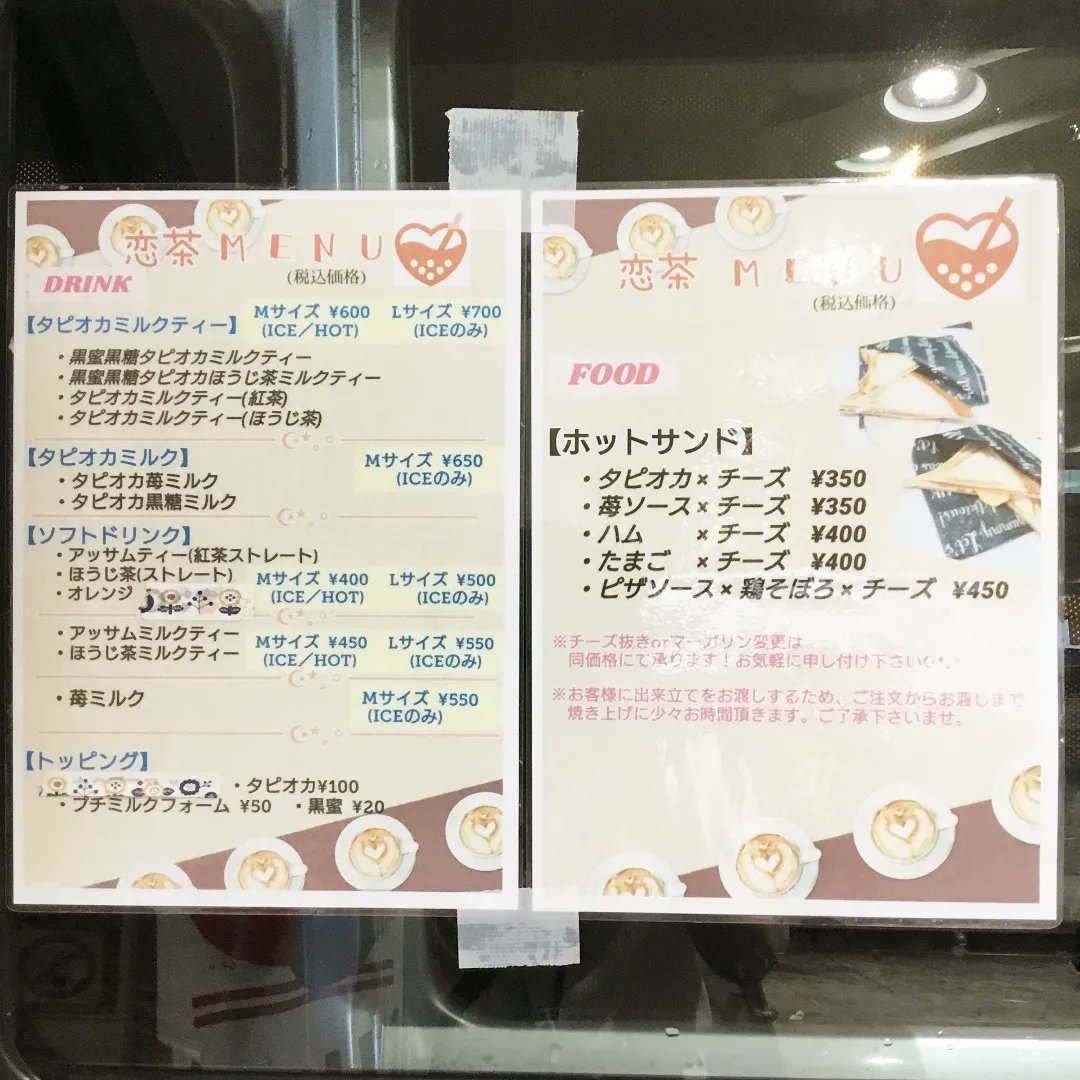 恋茶 MENU
(税込価格)
DRINK
【タピオカミルクティー】 Mサイズ ¥600 Lサイズ ¥700
(ICE/HOT) (ICEのみ)
・黒蜜黒糖タピオカミルクティー
・黒蜜黒糖タピオカほうじ茶ミルクティー
・タピオカミルクティー(紅茶)
・タピオカミルクティー(ほうじ茶)
【タピオカミルク】 Mサイズ ¥650
・タピオカ苺ミルク (ICEのみ)
・タピオカ黒糖ミルク
【ソフトドリンク】
・アッサムティー(紅茶ストレート)
・ほうじ茶(ストレート) Mサイズ ¥400 Lサイズ ¥500
・オレンジ (ICE/HOT) (ICEのみ)
・アッサムミルクティー Mサイズ ¥450 Lサイズ ¥550
・ほうじ茶ミルクティー (ICE/HOT) (ICEのみ)
・苺ミルク Mサイズ ¥550
(ICEのみ)
【トッピング】
・タピオカ¥100
・プチミルクフォーム ¥50 ・黒蜜 ¥20
恋茶 MENU
(税込価格)
FOOD
【ホットサンド】
・タピオカ × チーズ ¥350
・苺ソース × チーズ ¥350
・ハム × チーズ ¥400
・たまご × チーズ ¥400
・ピザソース × 鶏そぼろ × チーズ ¥450
※チーズ抜きorマーガリン変更は
同価格にて承ります！お気軽に申し付け下さい♡*。
※お客様に出来立てをお渡しするため、ご注文からお渡しまで
焼き上げに少々お時間頂きます。ご了承下さいませ。